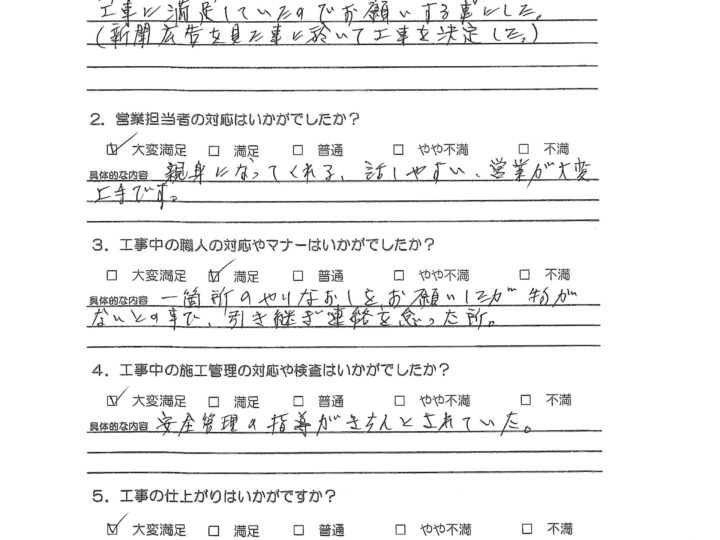 工事に満足していたのでお願いする事にした。
(新聞広告を見た事に於いて工事を決定した。)
2. 営業担当者の対応はいかがでしたか？
☑ 大変満足 □ 満足 □ 普通 □ やや不満 □ 不満
具体的な内容 親身になってくれる、話しやすい、営業が大変
上手です。
3. 工事中の職人の対応やマナーはいかがでしたか？
□ 大変満足 ☑ 満足 □ 普通 □ やや不満 □ 不満
具体的な内容 一箇所のやりなおしをお願いしたが 物が
ないとの事で、引き継ぎ連絡を怠った所。
4. 工事中の施工管理の対応や検査はいかがでしたか？
☑ 大変満足 □ 満足 □ 普通 □ やや不満 □ 不満
具体的な内容 安全管理の指導がきちんとされていた。
5. 工事の仕上がりはいかがですか？
☑ 大変満足 □ 満足 □ 普通 □ やや不満 □ 不満